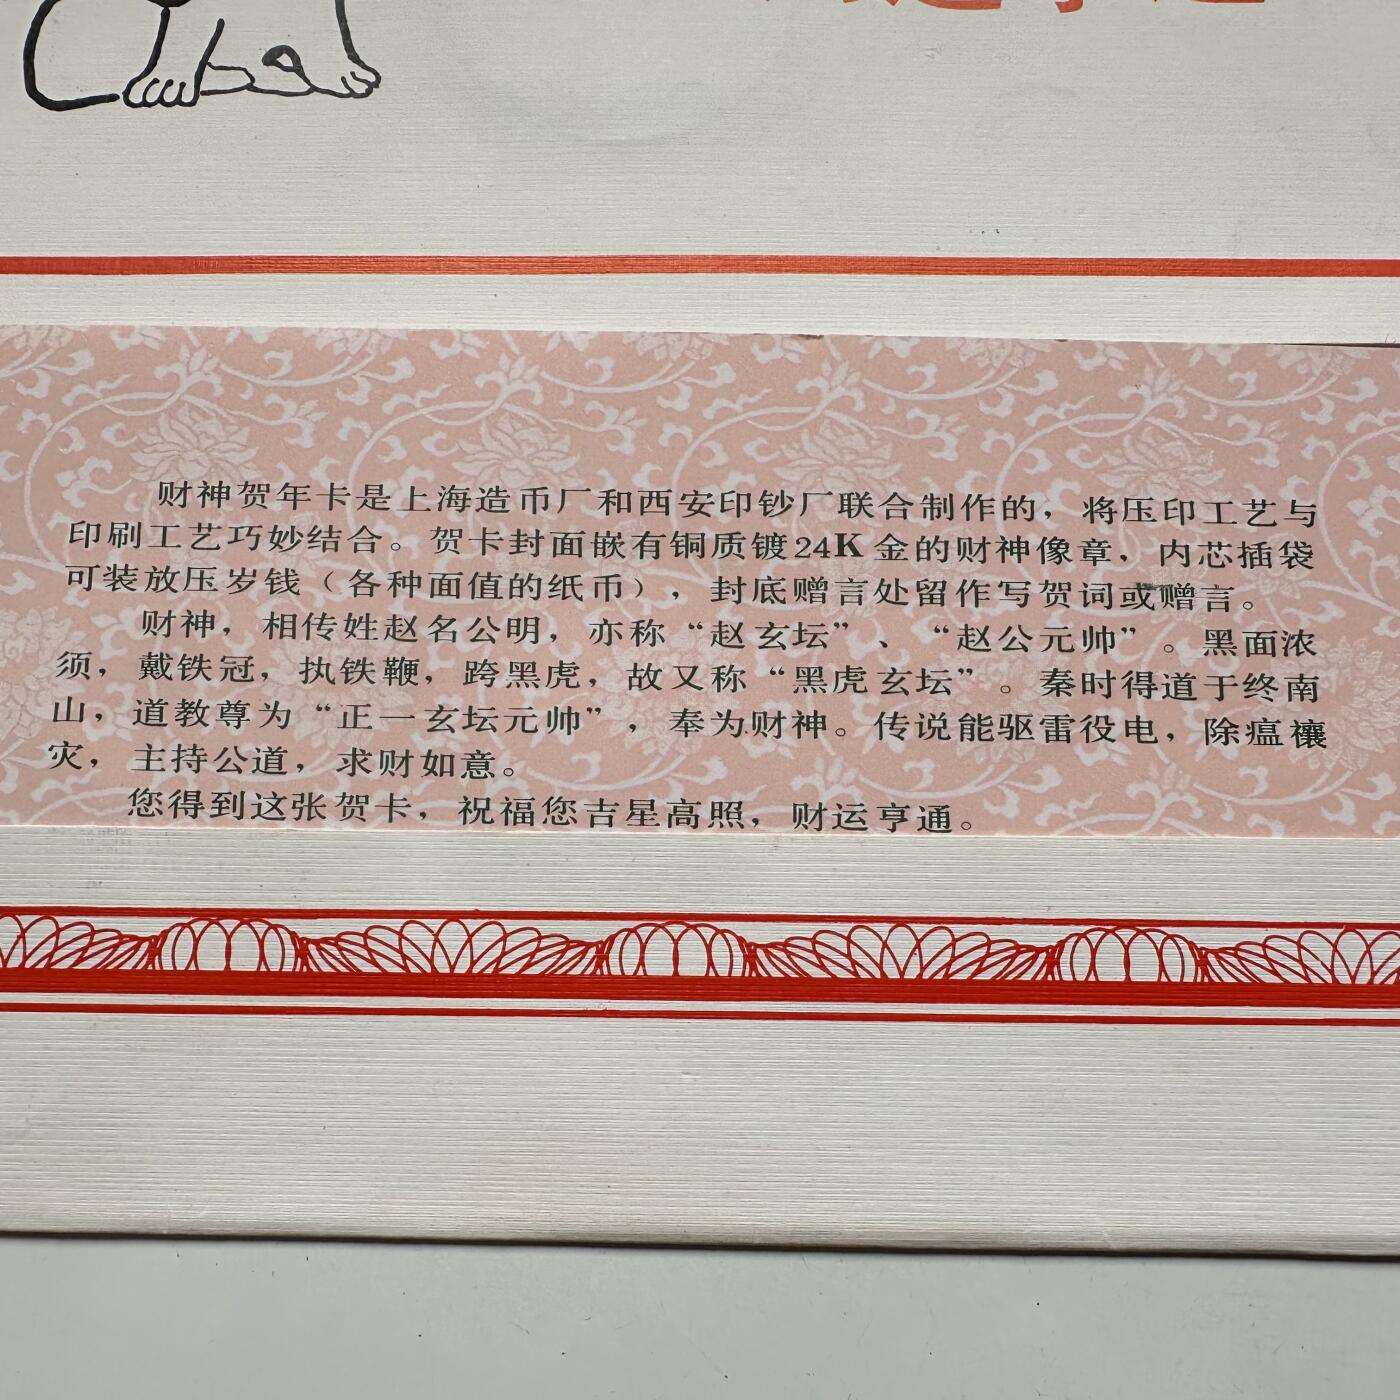 财神贺年卡是上海造币厂和西安印钞厂联合制作的，将压印工艺与
印刷工艺巧妙结合。贺卡封面嵌有铜质镀24K金的财神像章，内芯插袋
可装放压岁钱（各种面值的纸币），封底赠言处留作写贺词或赠言。
财神，相传姓赵名公明，亦称“赵玄坛”、“赵公元帅”。黑面浓
须，戴铁冠，执铁鞭，跨黑虎，故又称“黑虎玄坛”。秦时得道于终南
山，道教尊为“正一玄坛元帅”，奉为财神。传说能驱雷役电，除瘟禳
灾，主持公道，求财如意。
您得到这张贺卡，祝福您吉星高照，财运亨通。